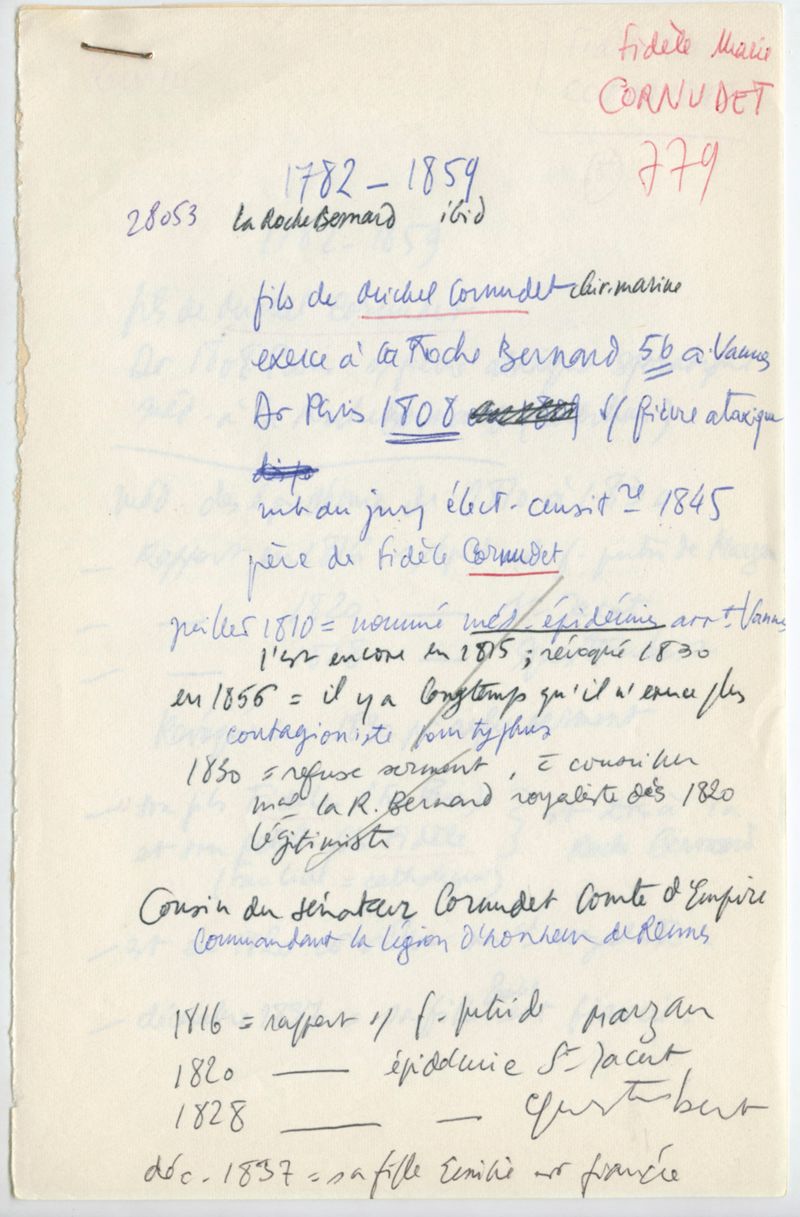 Fidèle Marie
CORNUDET
779
1782 – 1859
28053 la Roche Bernard ibid
fils de Michel Cornudet chir. marine
exerce à la Roche Bernard 56 a. Vannes
Dr Paris 1808 s/ fièvre ataxique
mb du jury élect. censitre 1845
père de Fidèle Cornudet
juillet 1810 = nommé méd. épidémies arrt Vannes
l'est encore en 1815 ; révoqué 1830
en 1856 = il y a longtemps qu'il n'exerce plus
contagioniste pour typhus
1830 = refuse serment, = conseiller
mal la R. Bernard royaliste dès 1820
légitimiste
Cousin du sénateur Cornudet Comte d'Empire
Commandant la légion d'honneur de Rennes
1816 = rapport s/ f. putride Marzan
1820 —— épidémie St-Jacut
1828 —— —
déc. 1837 = sa fille Emilie est fiancée